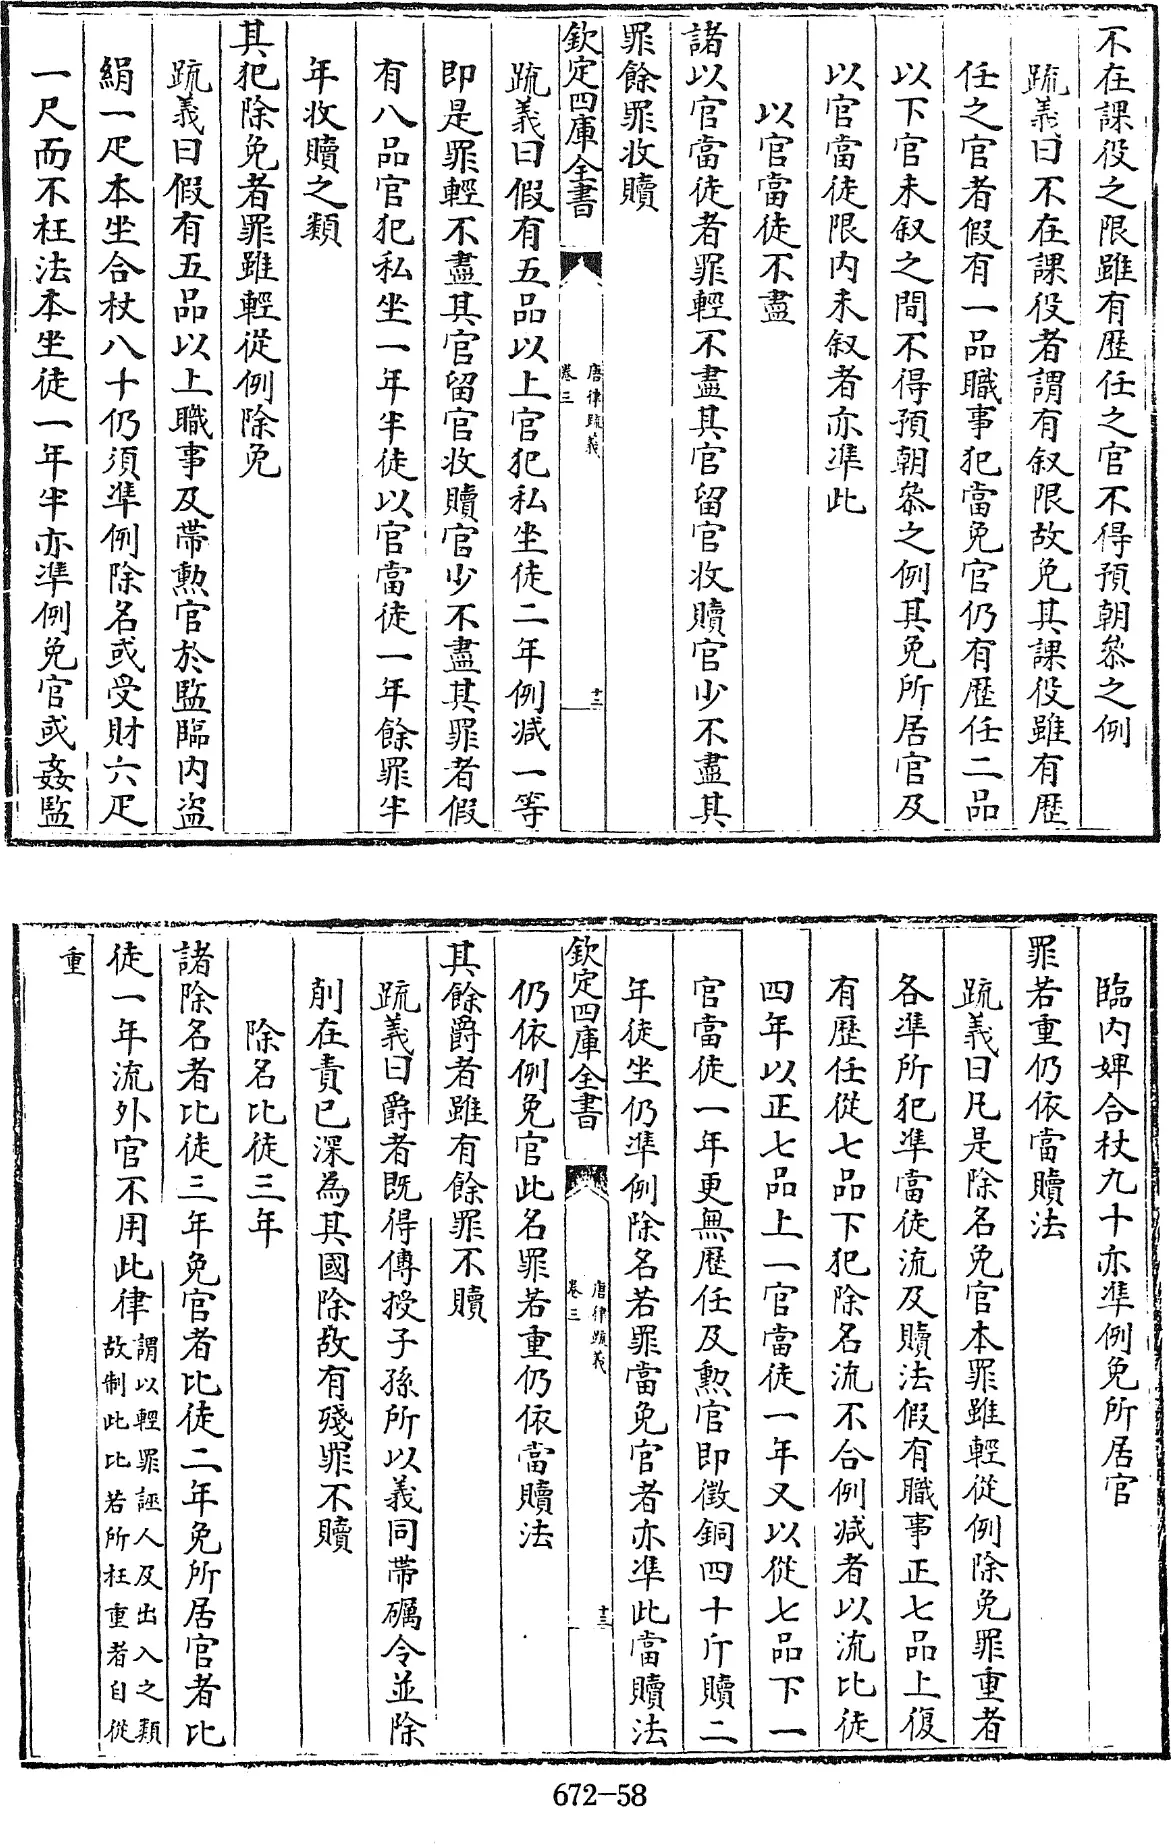 不在課役之限雖有歷任之官不得預朝叅之例
疏義曰不在課役者謂有叙限故免其課役雖有歷
任之官者假有一品職事犯當免官仍有歷任二品
以下官未叙之間不得預朝叅之例其免所居官及
以官當徒限内未叙者亦準此
以官當徒不盡
諸以官當徒者罪輕不盡其官留官收贖官少不盡其
罪餘罪收贖
欽定四庫全書
唐律疏義
卷三
十二
疏義曰假有五品以上官犯私坐徒二年例減一等
即是罪輕不盡其官留官收贖官少不盡其罪者假
有八品官犯私坐一年半徒以官當徒一年餘罪半
年收贖之類
其犯除免者罪雖輕從例除免
疏義曰假有五品以上職事及帶勲官於監臨内盗
絹一疋本坐合杖八十仍須準例除名或受財六疋
一尺而不枉法本坐徒一年半亦準例免官或姦監
臨内婢合杖九十亦準例免所居官
罪若重仍依當贖法
疏義曰凡是除名免官本罪雖輕從例除免罪重者
各準所犯準當徒流及贖法假有職事正七品上復
有歷任從七品下犯除名流不合例減者以流比徒
四年以正七品上一官當徒一年又以從七品下一
官當徒一年更無歷任及勲官即徵銅四十斤贖二
年徒坐仍準例除名若罪當免官者亦準此當贖法
欽定四庫全書
唐律疏義
卷三
十三
仍依例免官此名罪若重仍依當贖法
其餘爵者雖有餘罪不贖
疏義曰爵者既得傳授子孫所以義同帶礪令並除
削在責已深為其國除故有殘罪不贖
除名比徒三年
諸除名者比徒三年免官者比徒二年免所居官者比
徒一年流外官不用此律謂以輕罪誣人及出入之類
故制此比若所枉重者自從
重
672-58